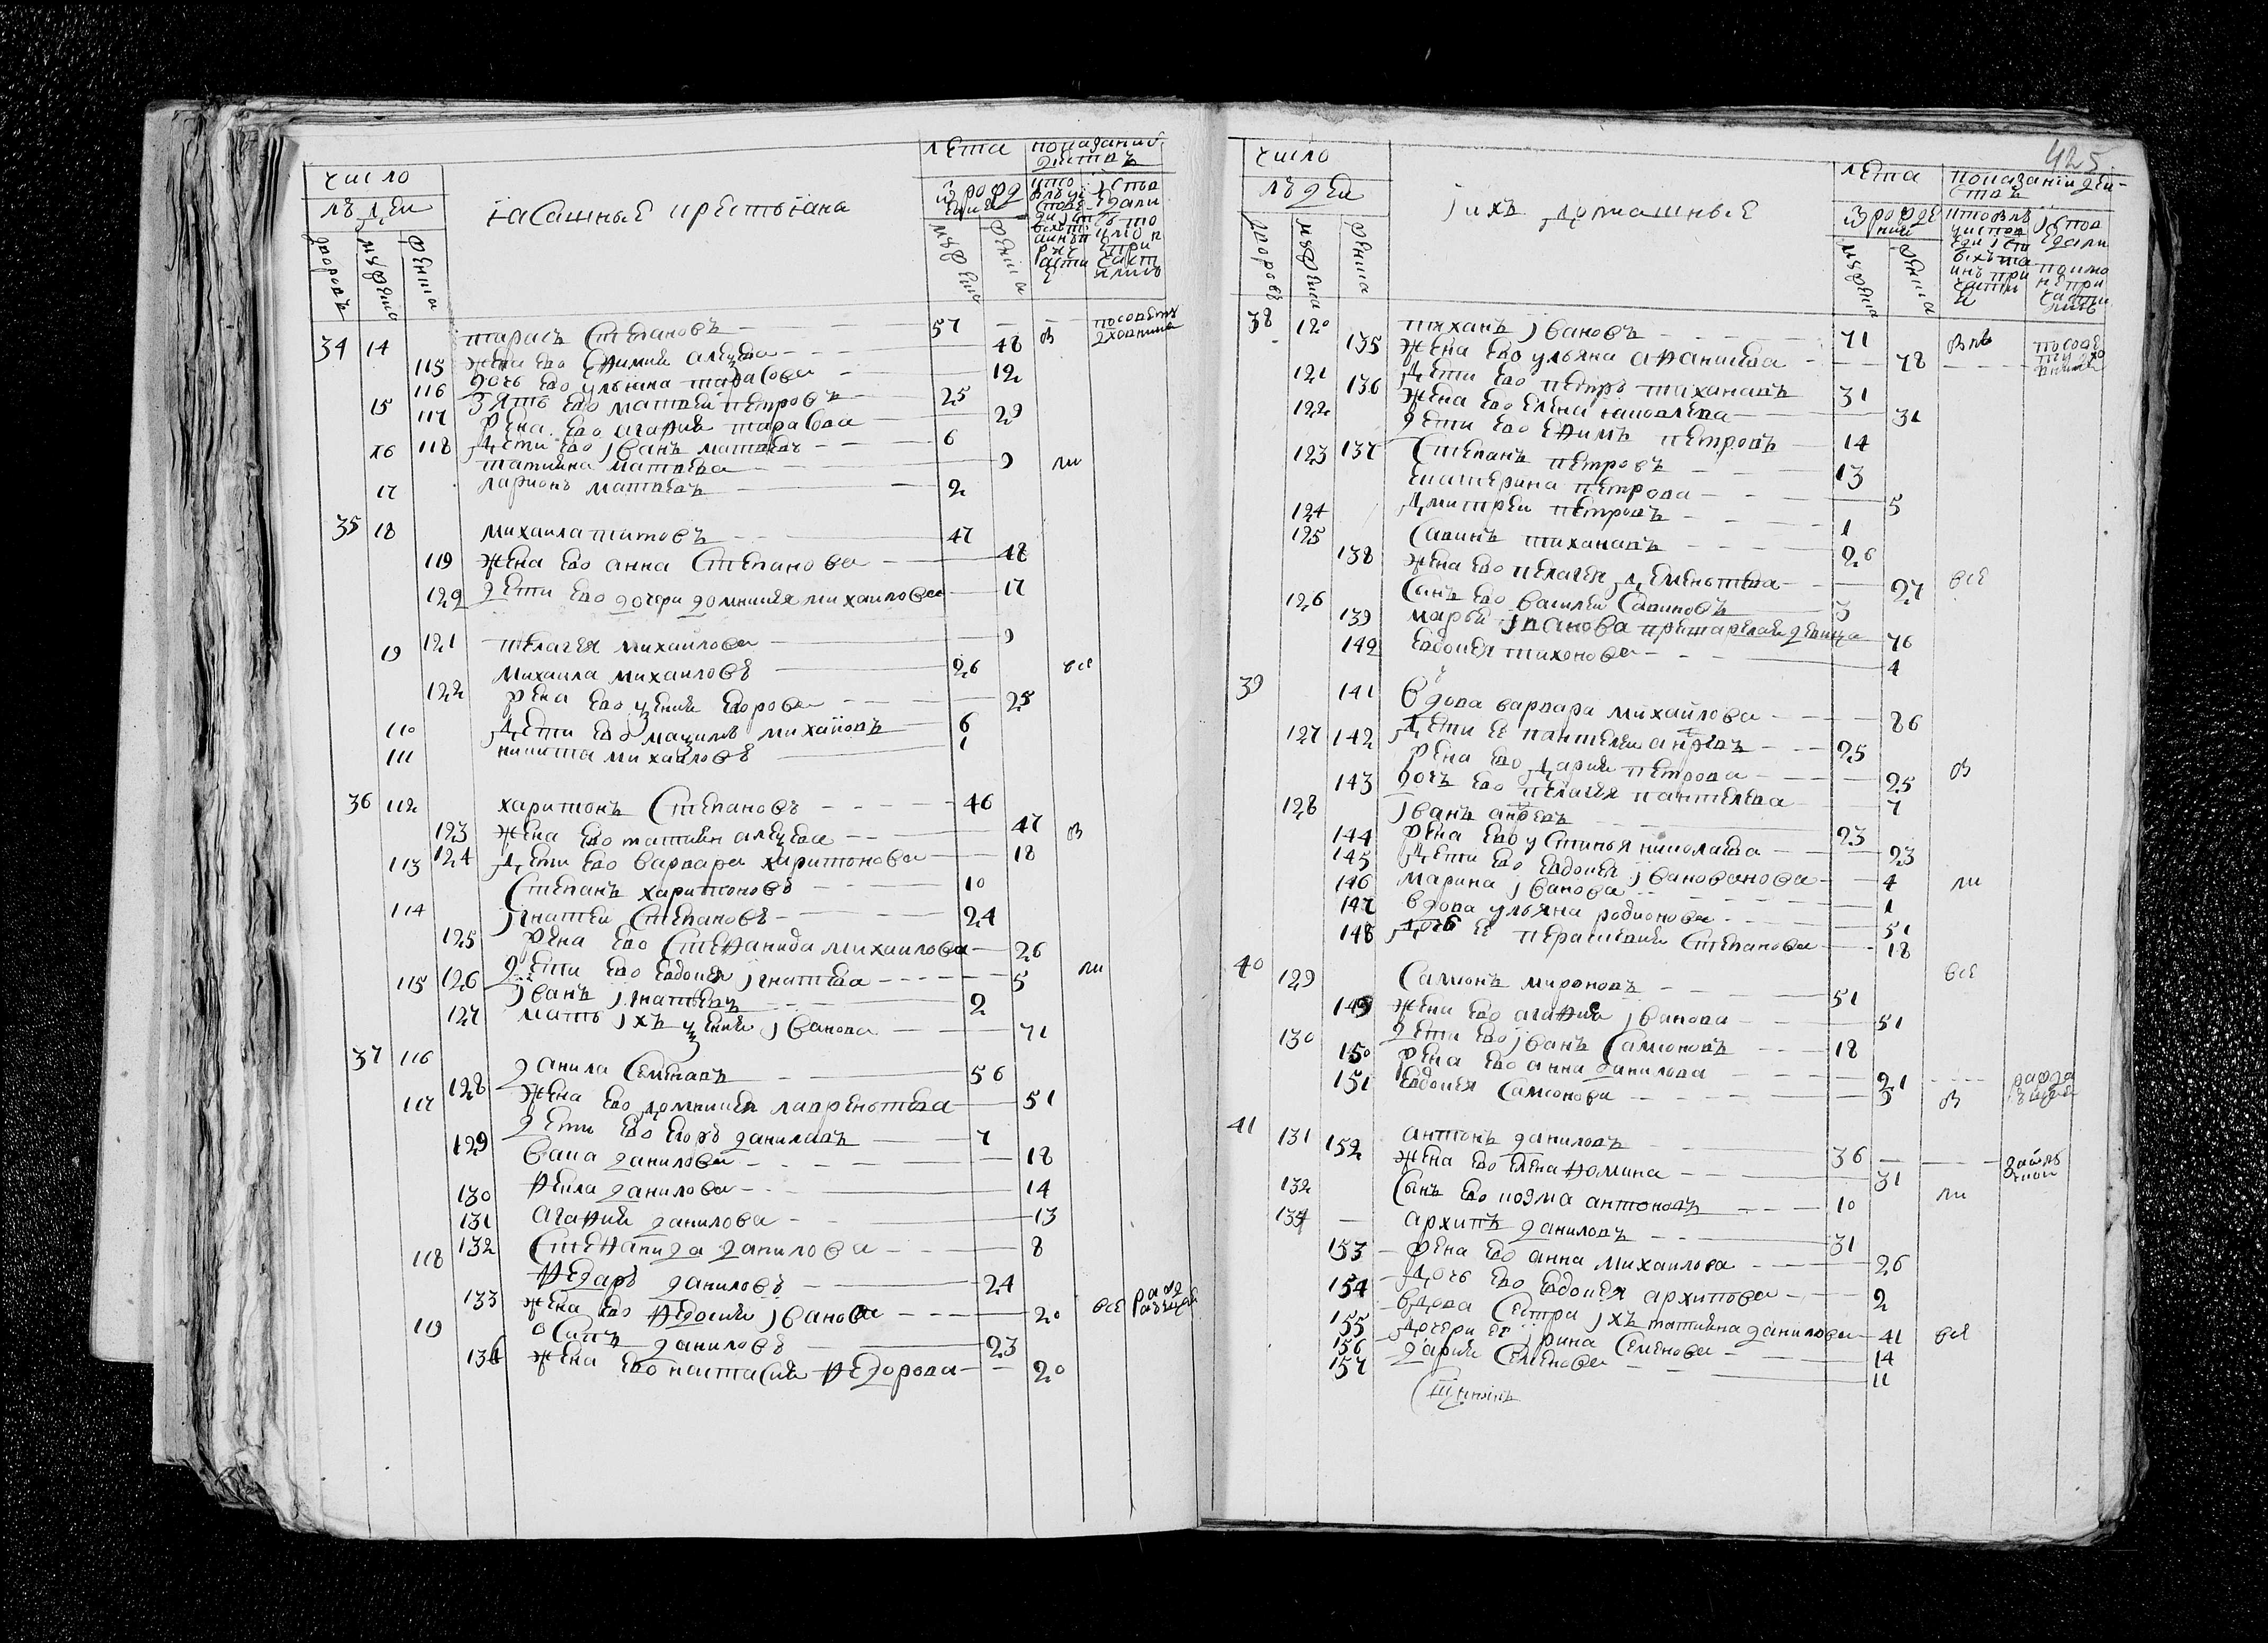 число
лета
показание действъ
людеи
ꙗсашные крестьꙗна
дворовъ
мужеска
женска
34 14 тарасъ Степановъ 57
115 жена ево Ефимия алеѯеева 48 в
116 дочь ево ульяна тарасова 12
15 зять ево матвей петровъ 25
117 жена ево агафия тарасова 29
16 118 дети ево јванъ матвеевъ 6
татияна матвеева 9 ли
17 ларионъ матвеевъ 2
35 18 михаила титовъ 47
119 жена ево анна Степанова 48
120 дети ево дочери домникия михаилова 17
121 пелагея михаилова 9
19 михаила михаиловъ 26 все
122 жена ево ѯения егорова 25
110 дети ево маѯимъ михаиловъ 6
111 никита михаиловъ 1
36 112 харитонъ Степановъ 46
123 жена ево татияна алеѯеева 47 в
113 124 дети ево варвара харитонова 18
Степанъ харитоновъ 10
114 јгнатеи Степановъ 24
125 жена ево Стефанида михаилова 26
115 126 дети ево евдокея јгнатева 5 ли
јванъ јгнатевъ 2
127 мать јхъ ѯения јванова 71
37 116 данила Семеновъ 56
128 жена ево домникея лаврентева 51
117 дети ево егоръ даниловъ 7
129 васа данилова 18
130 фекла данилова 14
131 агафия данилова 13
132 Стефанида данилова 8
118 федаръ даниловъ 24
133 жена ево федосия јванова 20 все
119 осипъ даниловъ 23
134 жена ево настасия федорова 20
425
число
лета
показании деиствъ
людеи
јихъ домашные
дворовъ
мужеска
женска
38 120 тиханъ јвановъ 71
135 жена ево ульяна афанасева 78
121 дети ево петръ тихановъ 31
136 жена ево елена ꙗковлева 31
122 дети ево ефимъ петровъ 14
123 137 Степанъ петровъ 13
екатерина петрова 5
124 дмитреи петровъ 1
125 Савинъ тихановъ 26
138 жена ево пелагея дементева 27 все
126 Сынъ ево василеи Савиновъ 3
139 марья јванова престарелая девица 76
140 евдокея тихонова 4
39 141 вдова варвара михаилова 86
127 142 дети ее пантелеи андреевъ 25
жена ево дария петрова 25 в
143 дочь ево пелагея пантелева 7
128 јванъ андреевъ 23
144 жена ево устинья николаева 23
145 дети ево евдокея јванованова 4 ли
146 марина јванова 1
147 вдова ульяна родионова 51
148 дочь ее парасковия Степанова 18
40 129 Самсонъ мироновъ 51 все
149 жена ево агафия јванова 51
130 дети ево јванъ Самсоновъ 18
150 жена ево анна данилова 21
151 евдокея Самсонова 3 в
41 131 антонъ даниловъ 36
152 жена ево елена фомина 31
132 Сынъ ево козма антоновъ 10 ли
134 архипъ даниловъ 31
153 жена ево анна михаилова 26
154 дочь ево евдокея архипова 2
155 вдова Сестра јхъ татияна данилова 41 все
156 дочери ее јрина Семенова 14
157 дария Семенова 11